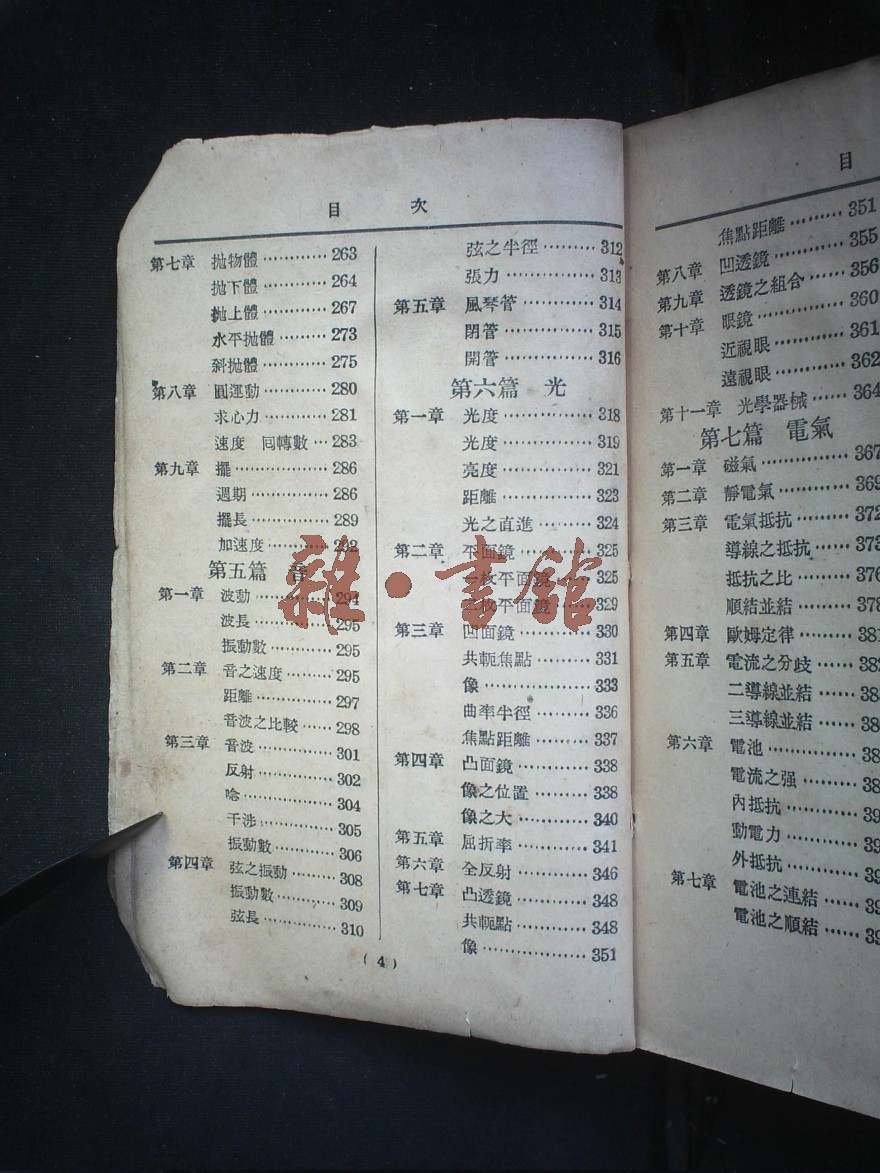 目 次
第七章 拋物體 ………… 263
拋下體 ………… 264
拋上體 ………… 267
水平拋體 ……… 273
斜拋體 ………… 275
第八章 圓運動 ………… 280
求心力 ………… 281
速度 囘轉數 … 283
第九章 擺 ……………… 286
週期 …………… 286
擺長 …………… 289
加速度 ………… 292
第五篇 音
第一章 波動 …………… 294
波長 …………… 295
振動數 ………… 295
第二章 音之速度 ……… 295
距離 …………… 297
音波之比較 …… 298
第三章 音波 …………… 301
反射 …………… 302
唸 ……………… 304
干涉 …………… 305
振動數 ………… 306
第四章 弦之振動 ……… 308
振動數 ………… 309
弦長 …………… 310
弦之半徑 ……… 312
張力 …………… 313
第五章 風琴管 ………… 314
閉管 …………… 315
開管 …………… 316
第六篇 光
第一章 光度 …………… 318
光度 …………… 319
亮度 …………… 321
距離 …………… 323
光之直進 ……… 324
第二章 平面鏡 ………… 325
一枚平面鏡 …… 325
二枚平面鏡 …… 329
第三章 凹面鏡 ………… 330
共軛焦點 ……… 331
像 ……………… 333
曲率半徑 ……… 336
焦點距離 ……… 337
第四章 凸面鏡 ………… 338
像之位置 ……… 338
像之大 ………… 340
第五章 屈折率 ………… 341
第六章 全反射 ………… 346
第七章 凸透鏡 ………… 348
共軛點 ………… 348
像 ……………… 351
(4)
目
焦點距離 ……… 351
第八章 凹透鏡 ………… 355
第九章 透鏡之組合 …… 356
第十章 眼鏡 …………… 360
近視眼 ………… 361
遠視眼 ………… 362
第十一章 光學器械 …… 364
第七篇 電氣
第一章 磁氣 …………… 367
第二章 靜電氣 ………… 369
第三章 電氣抵抗 ……… 372
導線之抵抗 …… 373
抵抗之比 ……… 376
順結並結 ……… 378
第四章 歐姆定律 ……… 381
第五章 電流之分歧 …… 38
二導線並結 …… 38
三導線並結 …… 38
第六章 電池 …………… 38
電流之强 ……… 38
內抵抗 ………… 39
動電力 ………… 39
外抵抗 ………… 39
第七章 電池之連結 …… 39
電池之順結 …… 39
雜·書館